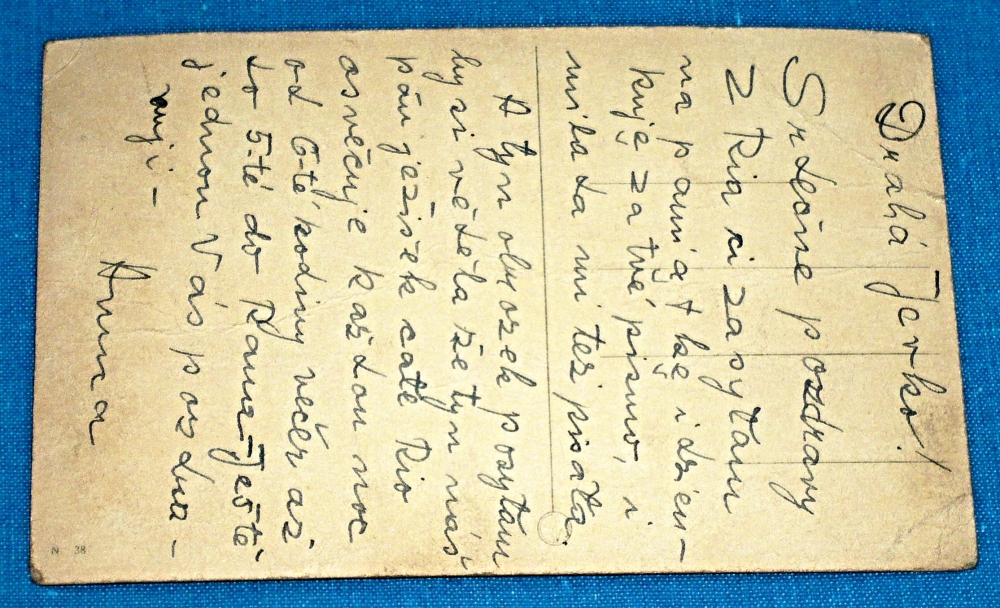 Drahá Jerko!
Srdečne pozdravy
z Ria ci zasyłam
na pamiątke i dzien-
kuję za twé pismo, i
miła da mi też pisała.
A tyn obrozek posyłam
bysi věděla že tyn náš
pán ježišek całe Rio
osvěčuje každou noc
od 6-té hodiny večer aż
do 5-té do Rana-Ještě
jednou Vás pozdra-
vuji -
Anna
N 38